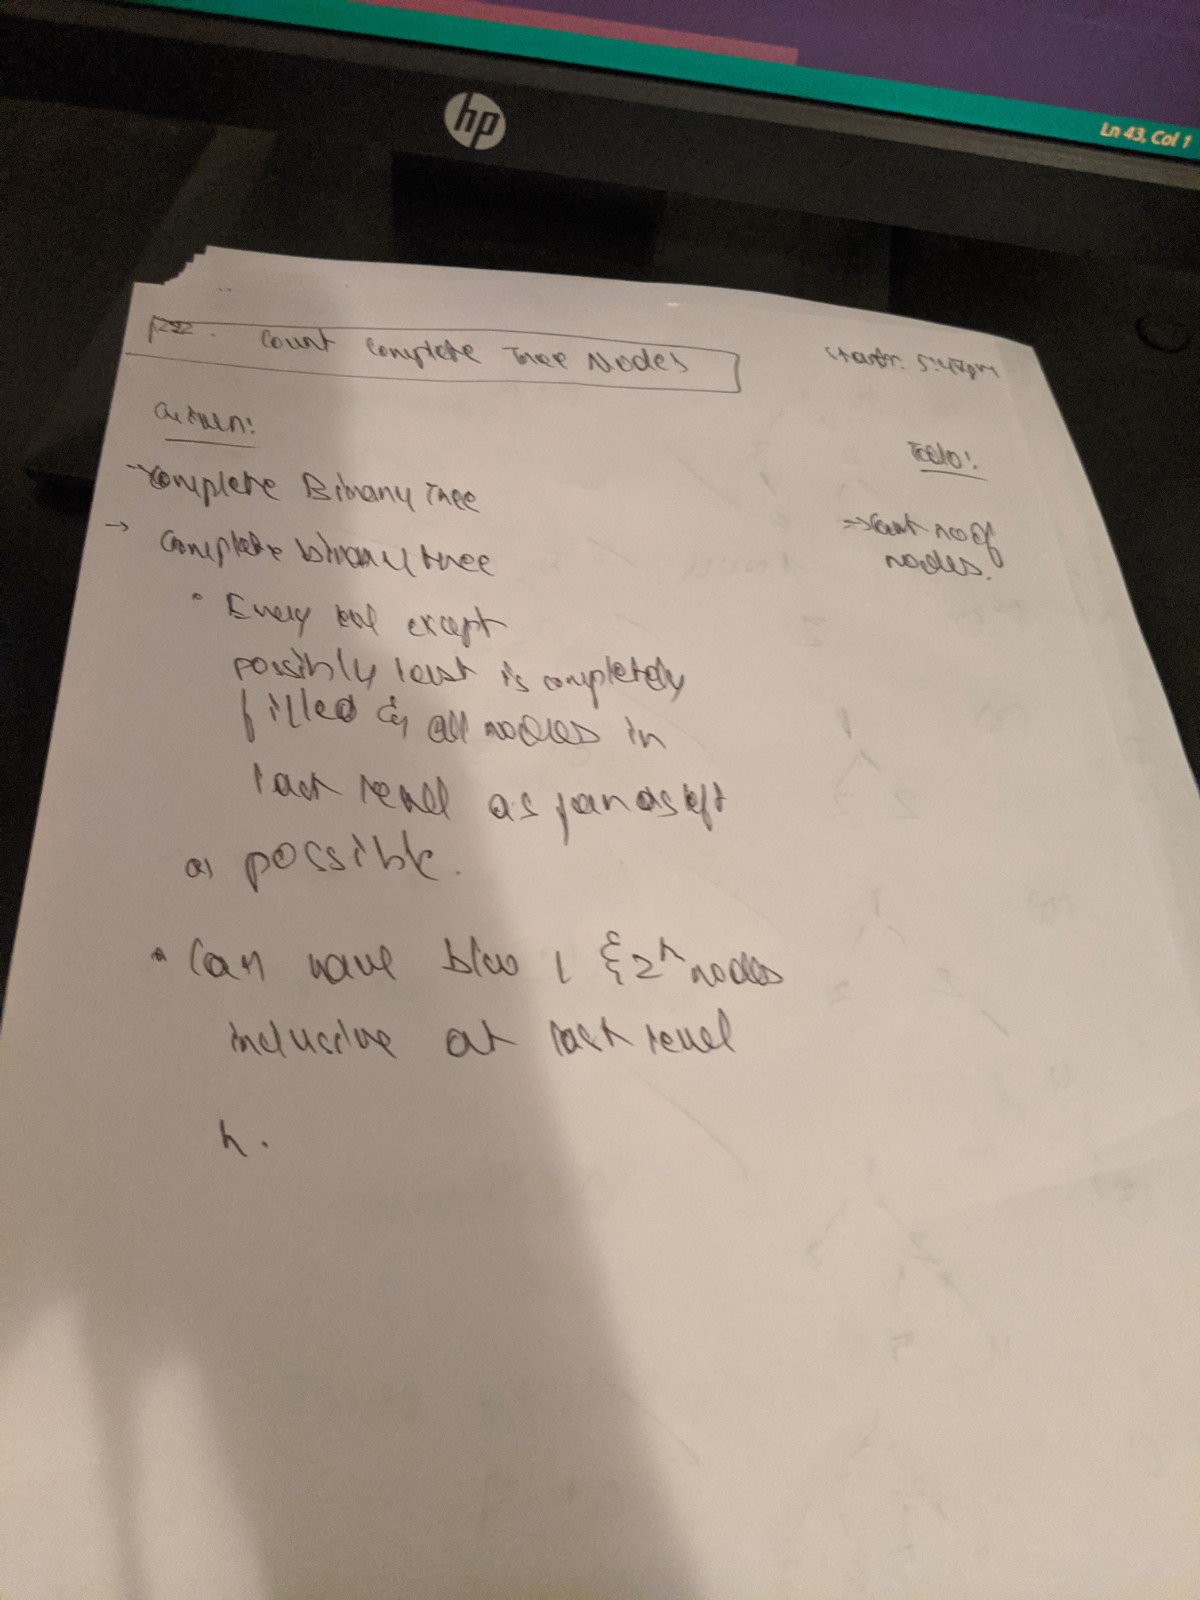 hp
Ln 43, Col 1
222. Count Complete Tree Nodes
Start: 5:48pm
Given:
Todo:
Complete Binary Tree
→ Count no of
nodes.
→ Complete binary tree
• Every level except
possibly last is completely
filled & all nodes in
last level as far as left
as possible.
• Can have b/w 1 & 2^h nodes
inclusive at last level
h.